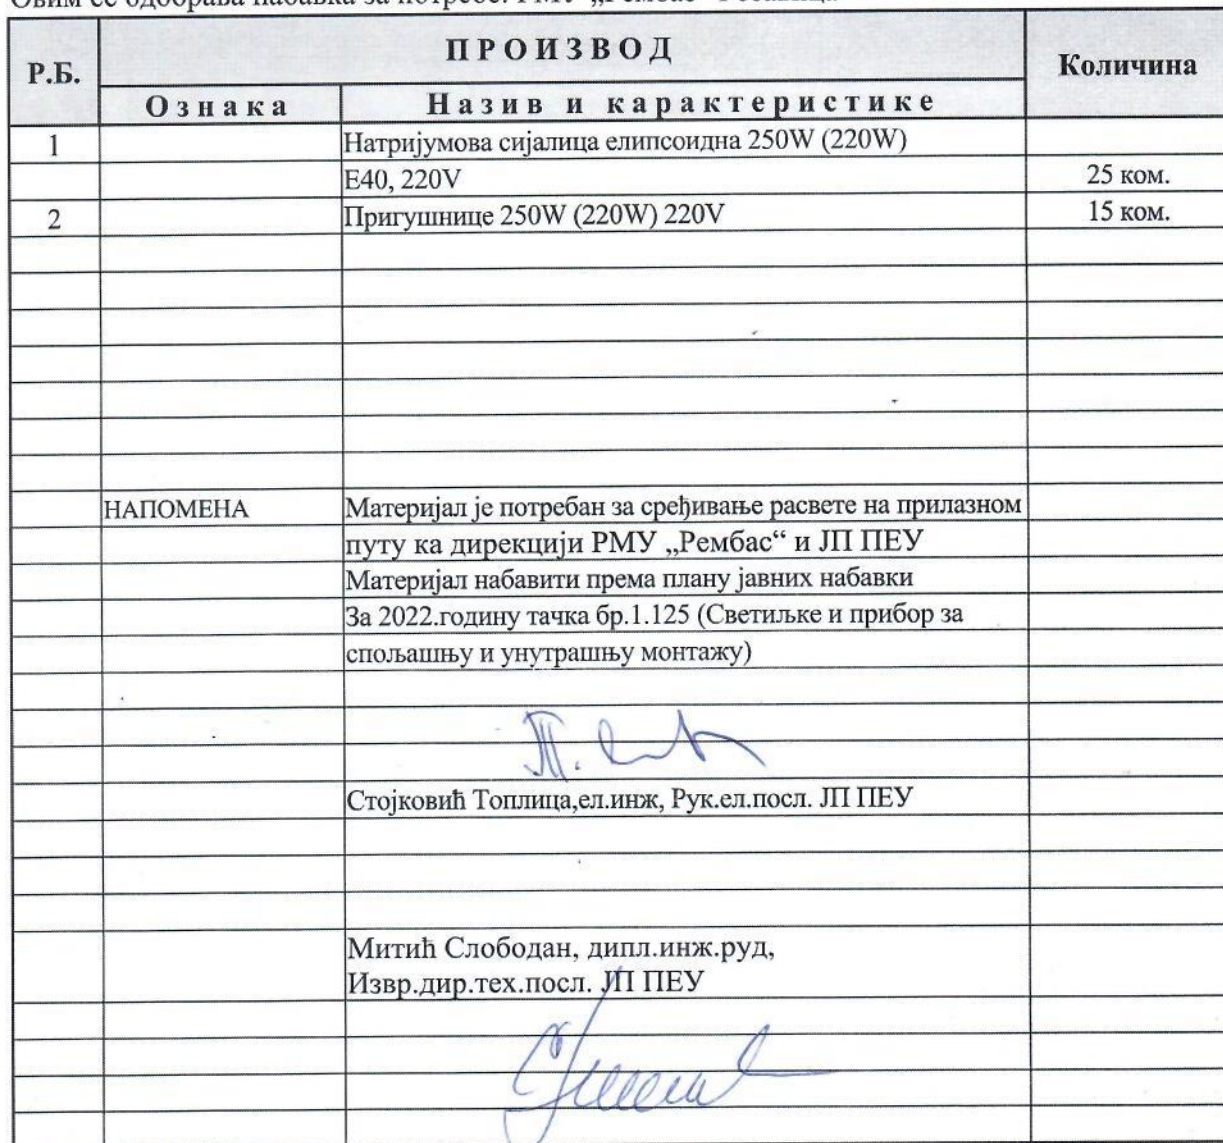 ПРОИЗВОД
Р.Б.
Количина
Ознака
Назив и карактеристике
1
Натријумова сијалица елипсоидна 250W (220W)
E40, 220V
25 ком.
2
Пригушнице 250W (220W) 220V
15 ком.
НАПОМЕНА
Материјал је потребан за сређивање расвете на прилазном
путу ка дирекцији РМУ „Рембас“ и ЈП ПЕУ
Материјал набавити према плану јавних набавки
За 2022.годину тачка бр.1.125 (Светиљке и прибор за
спољашњу и унутрашњу монтажу)
Стојковић Топлица,ел.инж, Рук.ел.посл. ЈП ПЕУ
Митић Слободан, дипл.инж.руд,
Извр.дир.тех.посл. ЈП ПЕУ